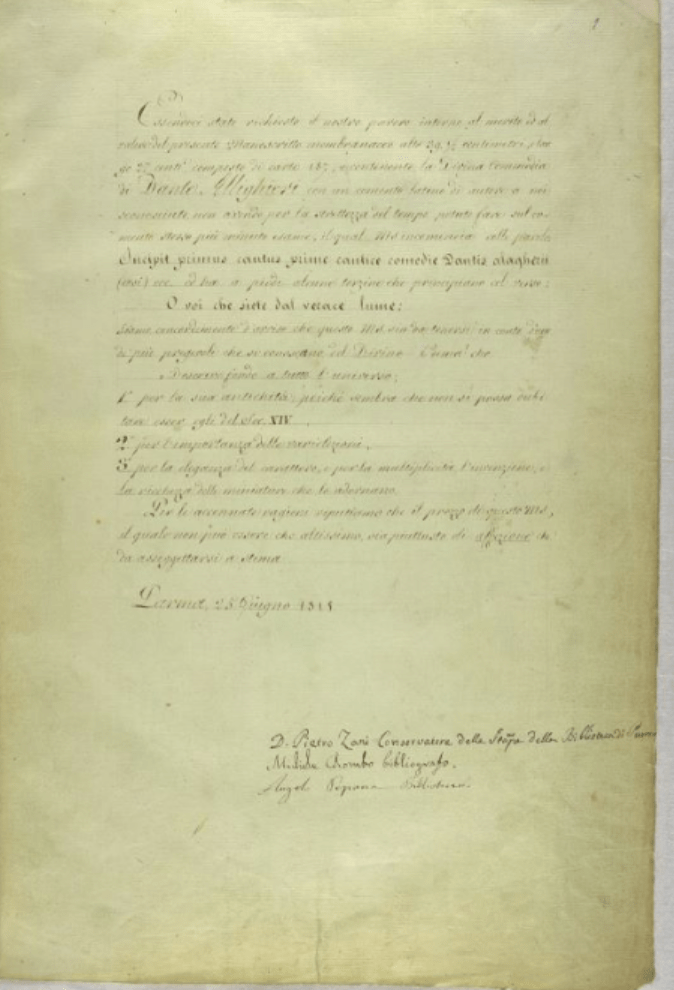 1
Essendoci stato richiesto il nostro parere intorno al merito ed al
valore del presente Manoscritto membranaceo alto 39 ½ centimetri, e lar
go 27 centi. composto di carte 187, e contenente la Divina Commedia
di Dante Allighieri con un comento latino di autore a noi
sconosciuto, non avendo per la strettezza del tempo potuto fare sul co-
mento stesso più minuto esame, il qual Ms incomincia alle parole
Incipit primus cantus prime cantice comedie Dantis alagherii
(così) ecc. ed ha a piedi alcune terzine che principiano col verso:
O voi che siete dal verace lume:
siamo concordemente d'avviso che questo Ms sia da tenersi in conto
di più pregevoli che si conoscano, del Divino Poema che
Descrive fondo a tutto l'universo;
1° per la sua antichità, poichè sembra che non si possa dubi
tare esser egli del Sec. XIV.
2° per l'importanza delle varie lezioni,
3° per la eleganza del carattere, e per la multiplicità, l'invenzione, e
la ricchezza delle miniature che lo adornano.
Per le accennate ragioni reputiamo che il prezzo di questo Ms,
il quale non può essere che altissimo, sia piuttosto di affezione che
da assoggettarsi a stima
Parma, 25 Giugno 181
D. Pietro Zani Conservatore della Stampe della Biblioteca di Parma
Michele Colombo bibliografo.
Angelo Pezzana Bibliotecario.